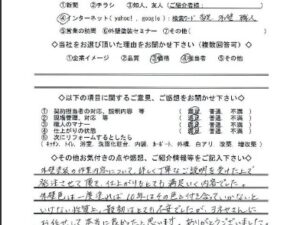 ①新聞 ②チラシ ③知人、友人(ご紹介者様: )
④インターネット(yahoo!、google) ・検索ワード 外壁 職人
⑤営業の訪問 ⑥外壁塗装セミナー ⑦その他( )
◇当社をお選び頂いた理由をお聞かせ下さい(複数回答可)◇
①企業イメージ ②品質 ③価格 ④担当者 ⑤その他
◇以下の項目に関するご意見、ご感想をお聞かせ下さい◇
① 契約担当者の対応、説明内容 等 満足 普通 不満
② 現場管理、対応 等 満足 普通 不満
③ 職人のマナー 満足 普通 不満
④ 仕上がりの状態 満足 普通 不満
⑤ 次にリフォームするとしたら
(キッチン、トイレ、浴室、洗面化粧台、内装、カーポート、外構、白アリ 改築 増改築)
◇その他お気付きの点や感想、ご紹介情報等をご記入下さい◇
外壁塗装の作業内容について、詳しく丁寧なご説明を受けた上で
発注させて頂き、仕上がりもとても満足いく内容でした。
外壁色は一度塗れば10年はその色と付き合っていかないと
いけない性質上、最初はとても不安でしたが、
お任せして本当に良かったと思います。ありがとうございました。